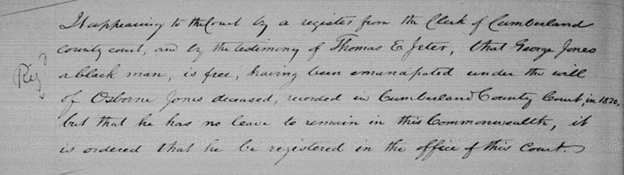 It appearing to the Court by a register from the Clerk of Cumberland
county court, and by the testimony of Thomas E Jeter, that George Jones
Reg?
a black man, is free, having been emanapated under the will
of Osborne Jones deceased, recorded in Cumberland County Court, in 1820,
but that he has no leave to remain in this Commonwealth, it
is ordered that he be registered in the office of this Court.